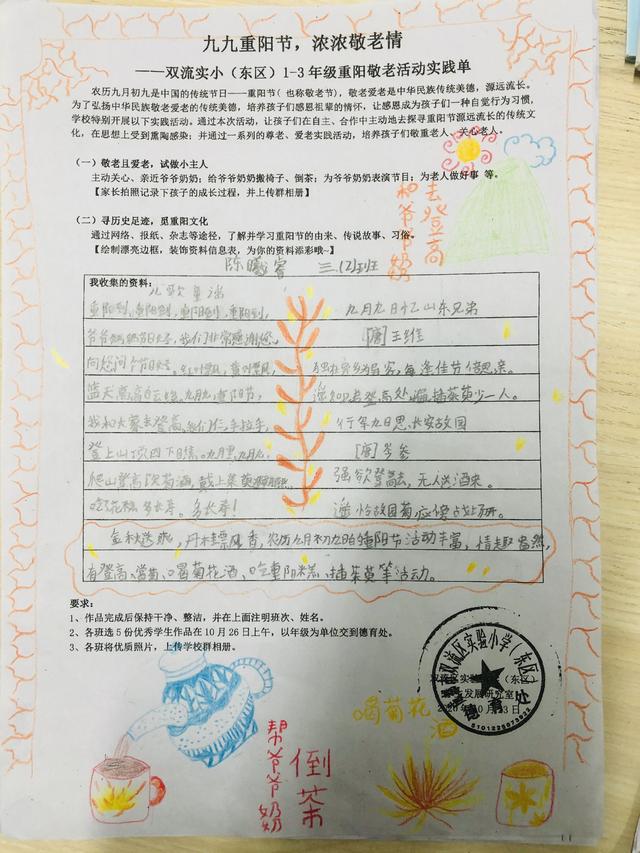 九九重阳节，浓浓敬老情
——双流实小（东区）1-3年级重阳敬老活动实践单
农历九月初九是中国的传统节日——重阳节（也称敬老节），敬老爱老是中华民族传统美德，源远流长。
为了弘扬中华民族敬老爱老的传统美德，培养孩子们感恩祖辈的情怀，让感恩成为孩子们一种自觉行为习惯，
学校特别开展以下实践活动。通过本次活动，让孩子们在自主、合作中主动地去探寻重阳节源远流长的传统文
化，在思想上受到熏陶感染；并通过一系列的尊老、爱老实践活动，培养孩子们敬重老人、关心老人。
（一）敬老且爱老，试做小主人
主动关心、亲近爷爷奶奶；给爷爷奶奶搬椅子、倒茶；为爷爷奶奶表演节目；为老人做好事 等。
【家长拍照记录下孩子的成长过程，并上传群相册】
去登高
和爷爷奶
（二）寻历史足迹，觅重阳文化
通过网络、报纸、杂志等途径，了解并学习重阳节的由来、传说故事、习俗。
【绘制漂亮边框，装饰资料信息表，为你的资料添彩哦~】
陈曦睿 三（2）班
我收集的资料：
儿歌
重阳到，重阳到，重阳到，重阳到，
爷爷奶奶节日好，我们非常感谢您，
向您问个节日好。
蓝天高高白云飘，九月九重阳节，
我和大家去登高，我们手拉手，
登上山顶四下瞧。九月九，
爬山登高饮菊酒，戴上茱萸
吃花糕，多长寿。多长寿！
九月九日忆山东兄弟
[唐]王维
独在异乡为异客，每逢佳节倍思亲。
遥知兄弟登高处，遍插茱萸少一人。
行军九日思长安故园
[唐]岑参
强欲登高去，无人送酒来。
遥怜故园菊，应傍战场开。
金秋送爽，丹桂飘香，农历九月初九的重阳节活动丰富，情趣盎然，
有登高、赏菊、喝菊花酒、吃重阳糕、插茱萸等活动。
要求：
1、作品完成后保持干净、整洁，并在上面注明班次、姓名。
2、各班选5份优秀学生作品在10月26日上午，以年级为单位交到德育处。
3、各班将优质照片，上传学校群相册。
双流区实验小学（东区）
德育处
5101229079922
喝菊花
酒
帮爷爷奶
倒茶